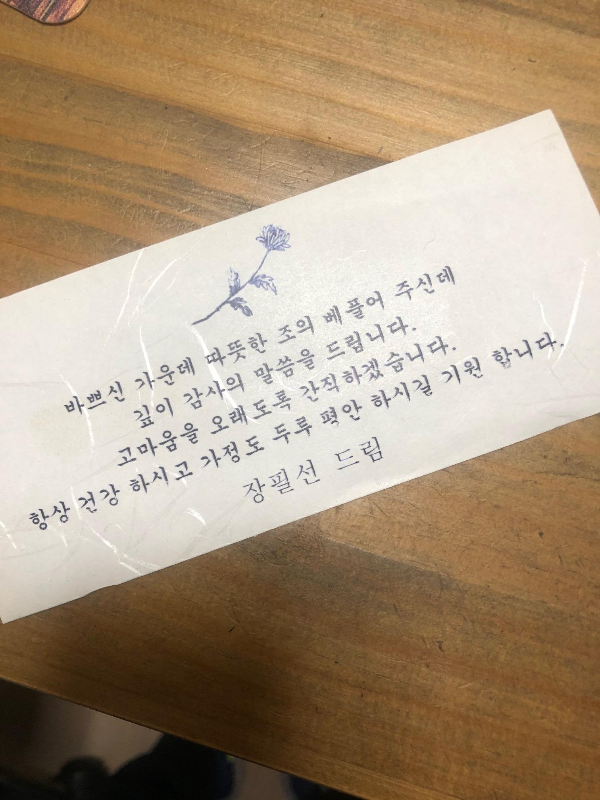 바쁘신 가운데 따뜻한 조의 베풀어 주신데
깊이 감사의 말씀을 드립니다.
고마움을 오래도록 간직하겠습니다.
항상 건강 하시고 가정도 두루 평안 하시길 기원 합니다.
장필선 드림